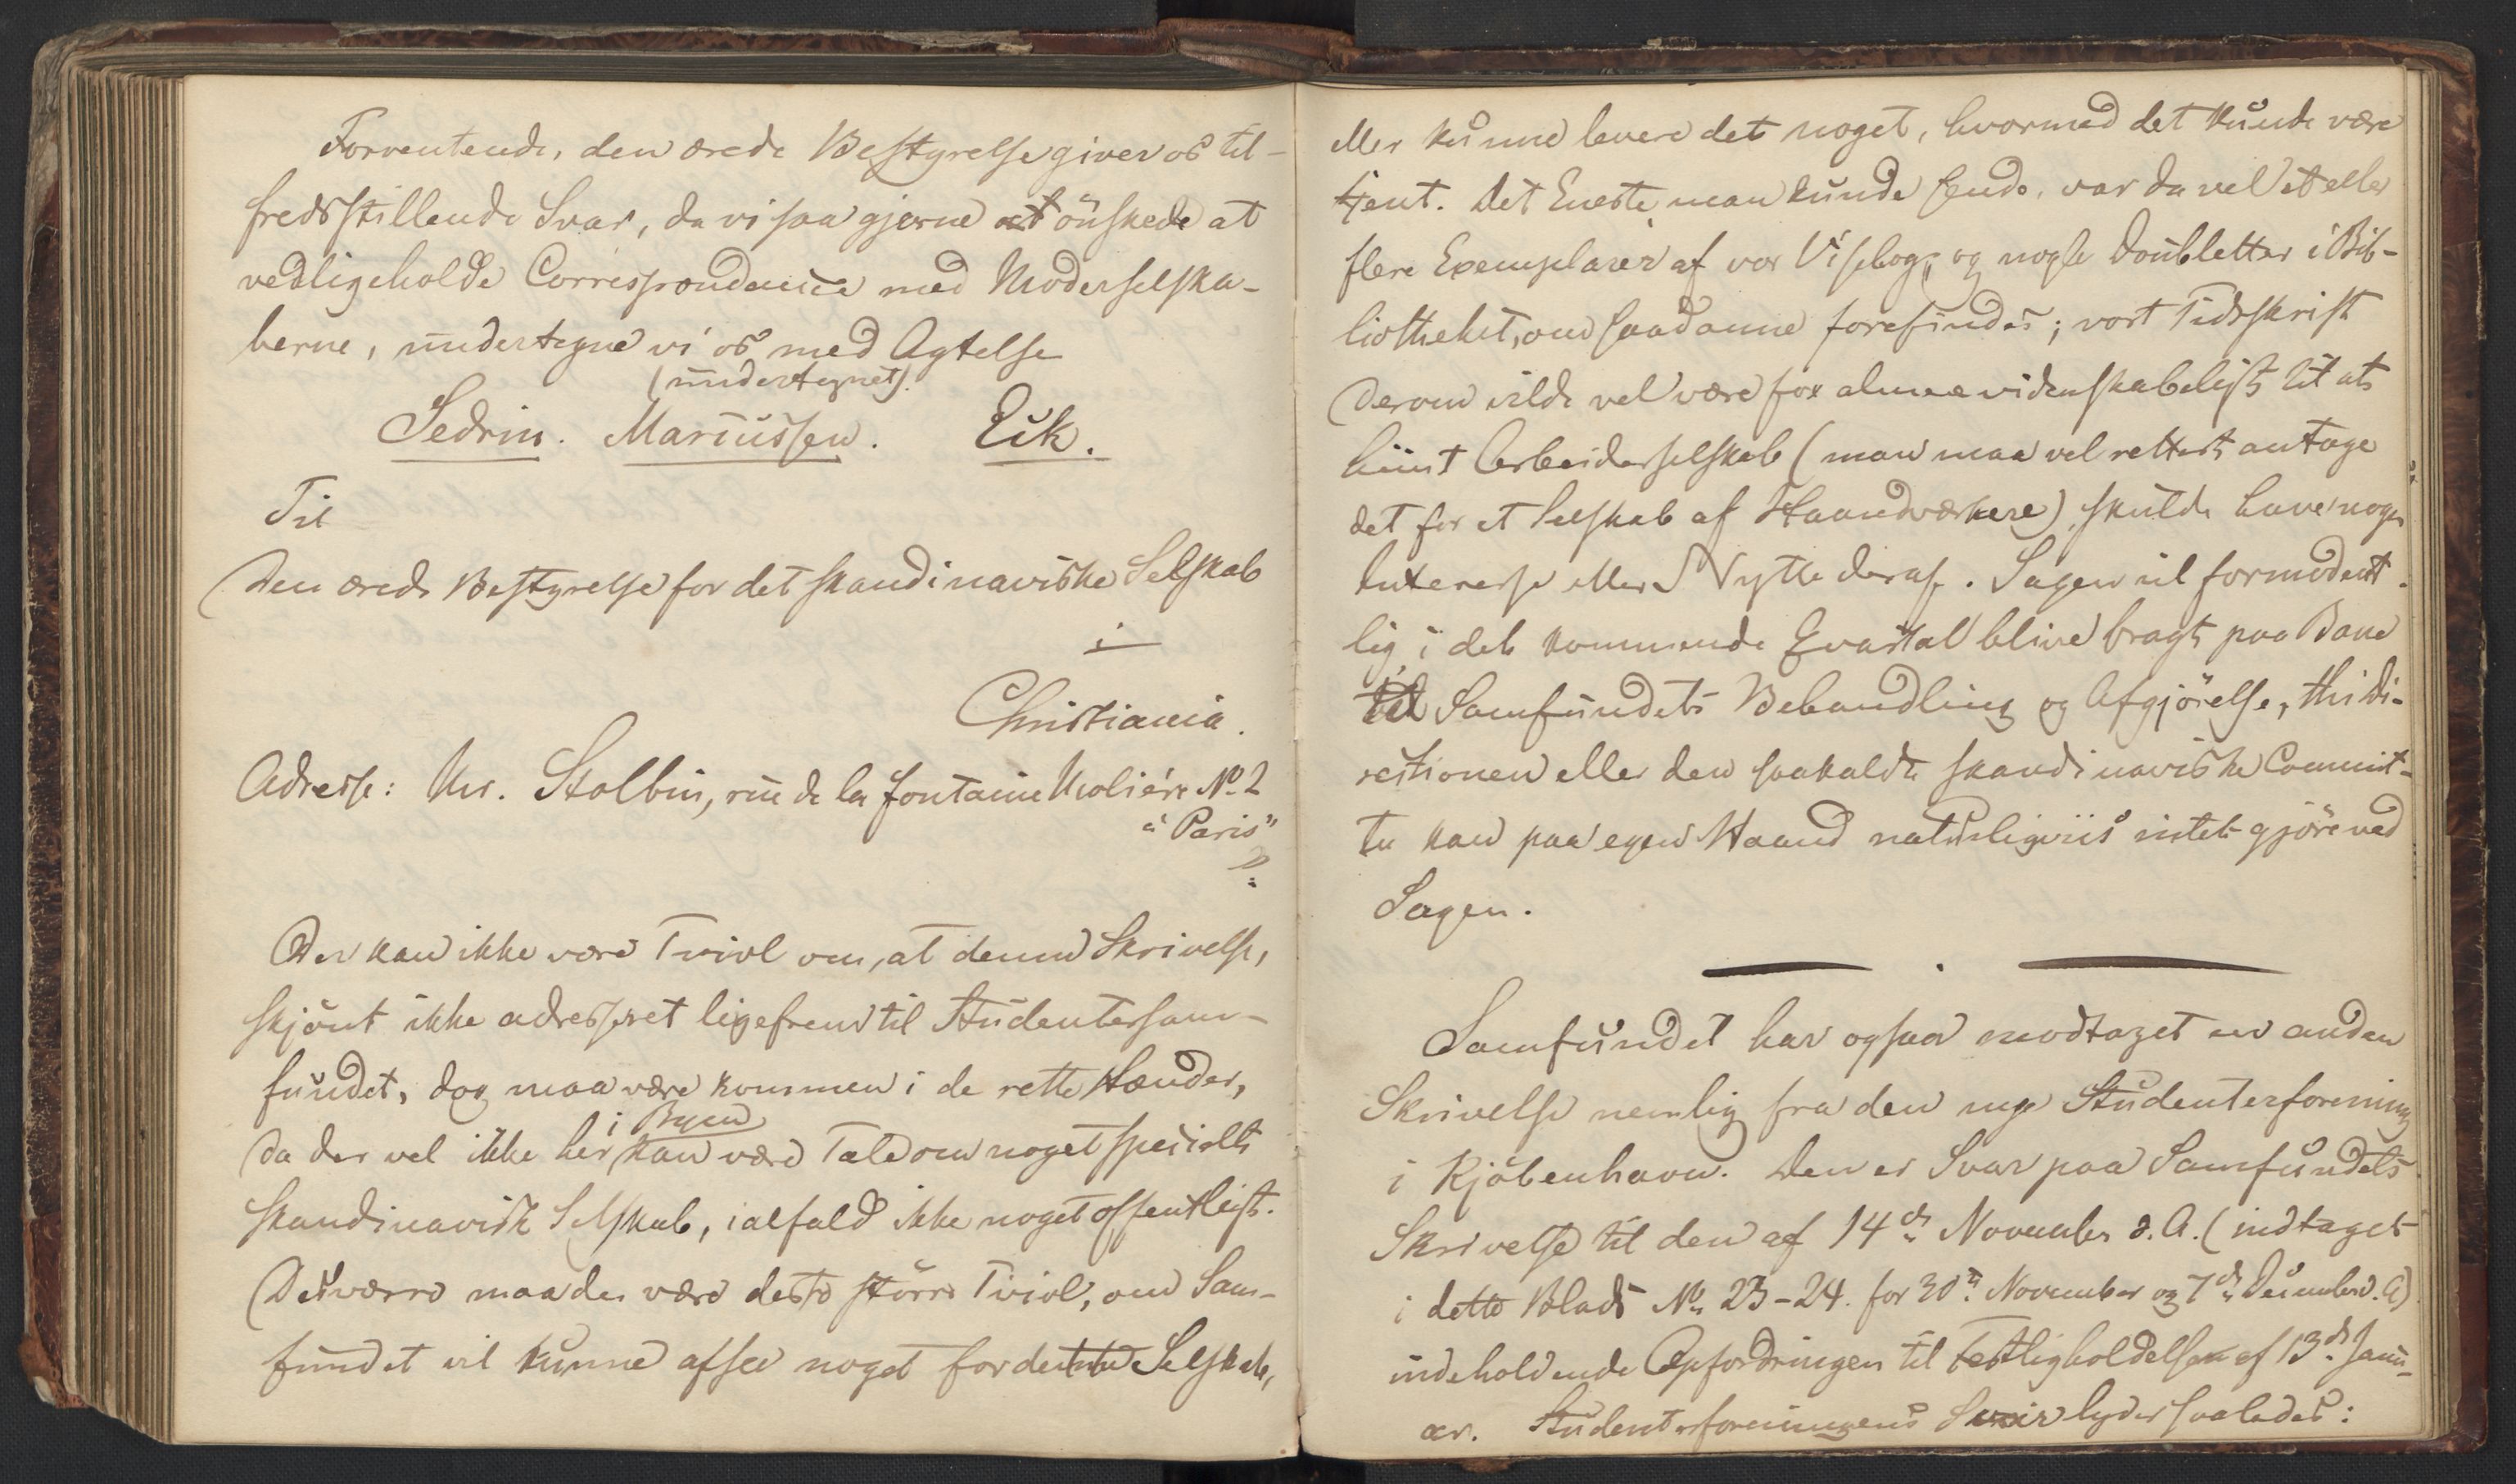 Forventende, den ærede Bestyrelse giver os til-
fredsstillende Svar, da vi saa gjerne at önskede at
vedligeholde Correspondance med Moderselska-
berne, undertegne vi os med Agtelse
(undertegnet).
Sedrin. Mariussen. Eck.
Til
Den ærede Bestyrelse for det skandinaviske Selskab
i
Christiania.
Adresse: Mr. Stolbin, rue de la fontaine Moliére No 2
"à Paris"
Der kan ikke være Tvivl om, at denne Skrivelse,
skjönt ikke adresseret ligefrem til Studentersam-
fundet, dog maa være kommen i de rette Hænder,
i Byen
da der vel ikke her kan være Tale om noget specielt
skandinavisk Selskab, ialfald ikke noget offentligt.
Desværre maa der være desto större Tvivl, om Sam-
fundet vil kunne afsee noget for dette Selskab,
eller kunne levere det noget, hvormed det kunde være
tjent. Det Eneste man kunde sende, var da vel et eller
flere Exemplarer af vor Visebog, og nogle Doubletter i Bib-
liotheket, om saadanne forefindes; vort Tidsskrift
derom vilde vel være for almeenvidenskabeligt til at
hiint Arbeiderselskab (man maa vel rettest antage
det for et Selskab af Haandværkere), skulde have nogen
Interesse eller Nytte deraf. Sagen vil formodent-
lig i det kommende Qvartal blive bragt paa Bane
til Samfundets Behandling og Afgjörelse, thi Di-
rectionen eller den saakaldte skandinaviske Commit-
te kan paa egen Haand naturligviis intet gjöre ved
Sagen.
Samfundet har ogsaa modtaget en anden
Skrivelse nemlig fra den nye Studenterforening
i Kjöbenhavn. Den er Svar paa Samfundets
Skrivelse til den af 14de November d. A. (indtaget
i dette Blads No 23-24. for 30te November og 7de December d. A)
indeholdende Opfordringen til Festligholdelsen af 13de Janu-
ar. Studenterforeningens Svar lyder saaledes: